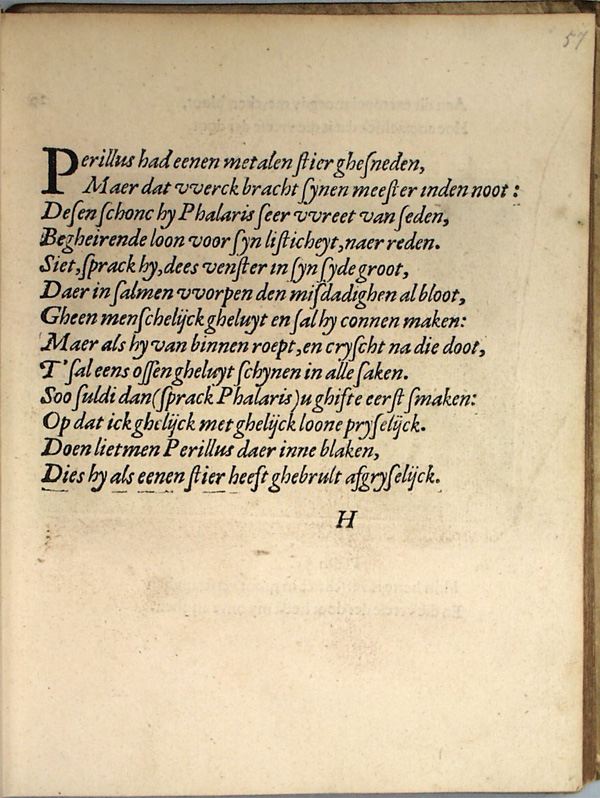 57
Perillus had eenen metalen ſtier gheſneden,
Maer dat vverck bracht ſynen meeſter inden noot:
Deſen ſchonc hy Phalaris ſeer vvreet van ſeden,
Begheirende loon voor ſyn liſticheyt, naer reden.
Siet, ſprack hy, dees venſter in ſyn ſyde groot,
Daer in ſalmen vvorpen den miſdadighen al bloot,
Gheen menſchelijck gheluyt en ſal hy connen maken:
Maer als hy van binnen roept, en cryſcht na die doot,
T'ſal eens oſſen gheluyt ſchynen in alle ſaken.
Soo ſuldi dan (ſprack Phalaris) u ghifte eerſt ſmaken:
Op dat ick ghelijck met ghelijck loone pryſelijck.
Doen lietmen Perillus daer inne blaken,
Dies hy als eenen ſtier heeft ghebrult afgryſelijck.
H